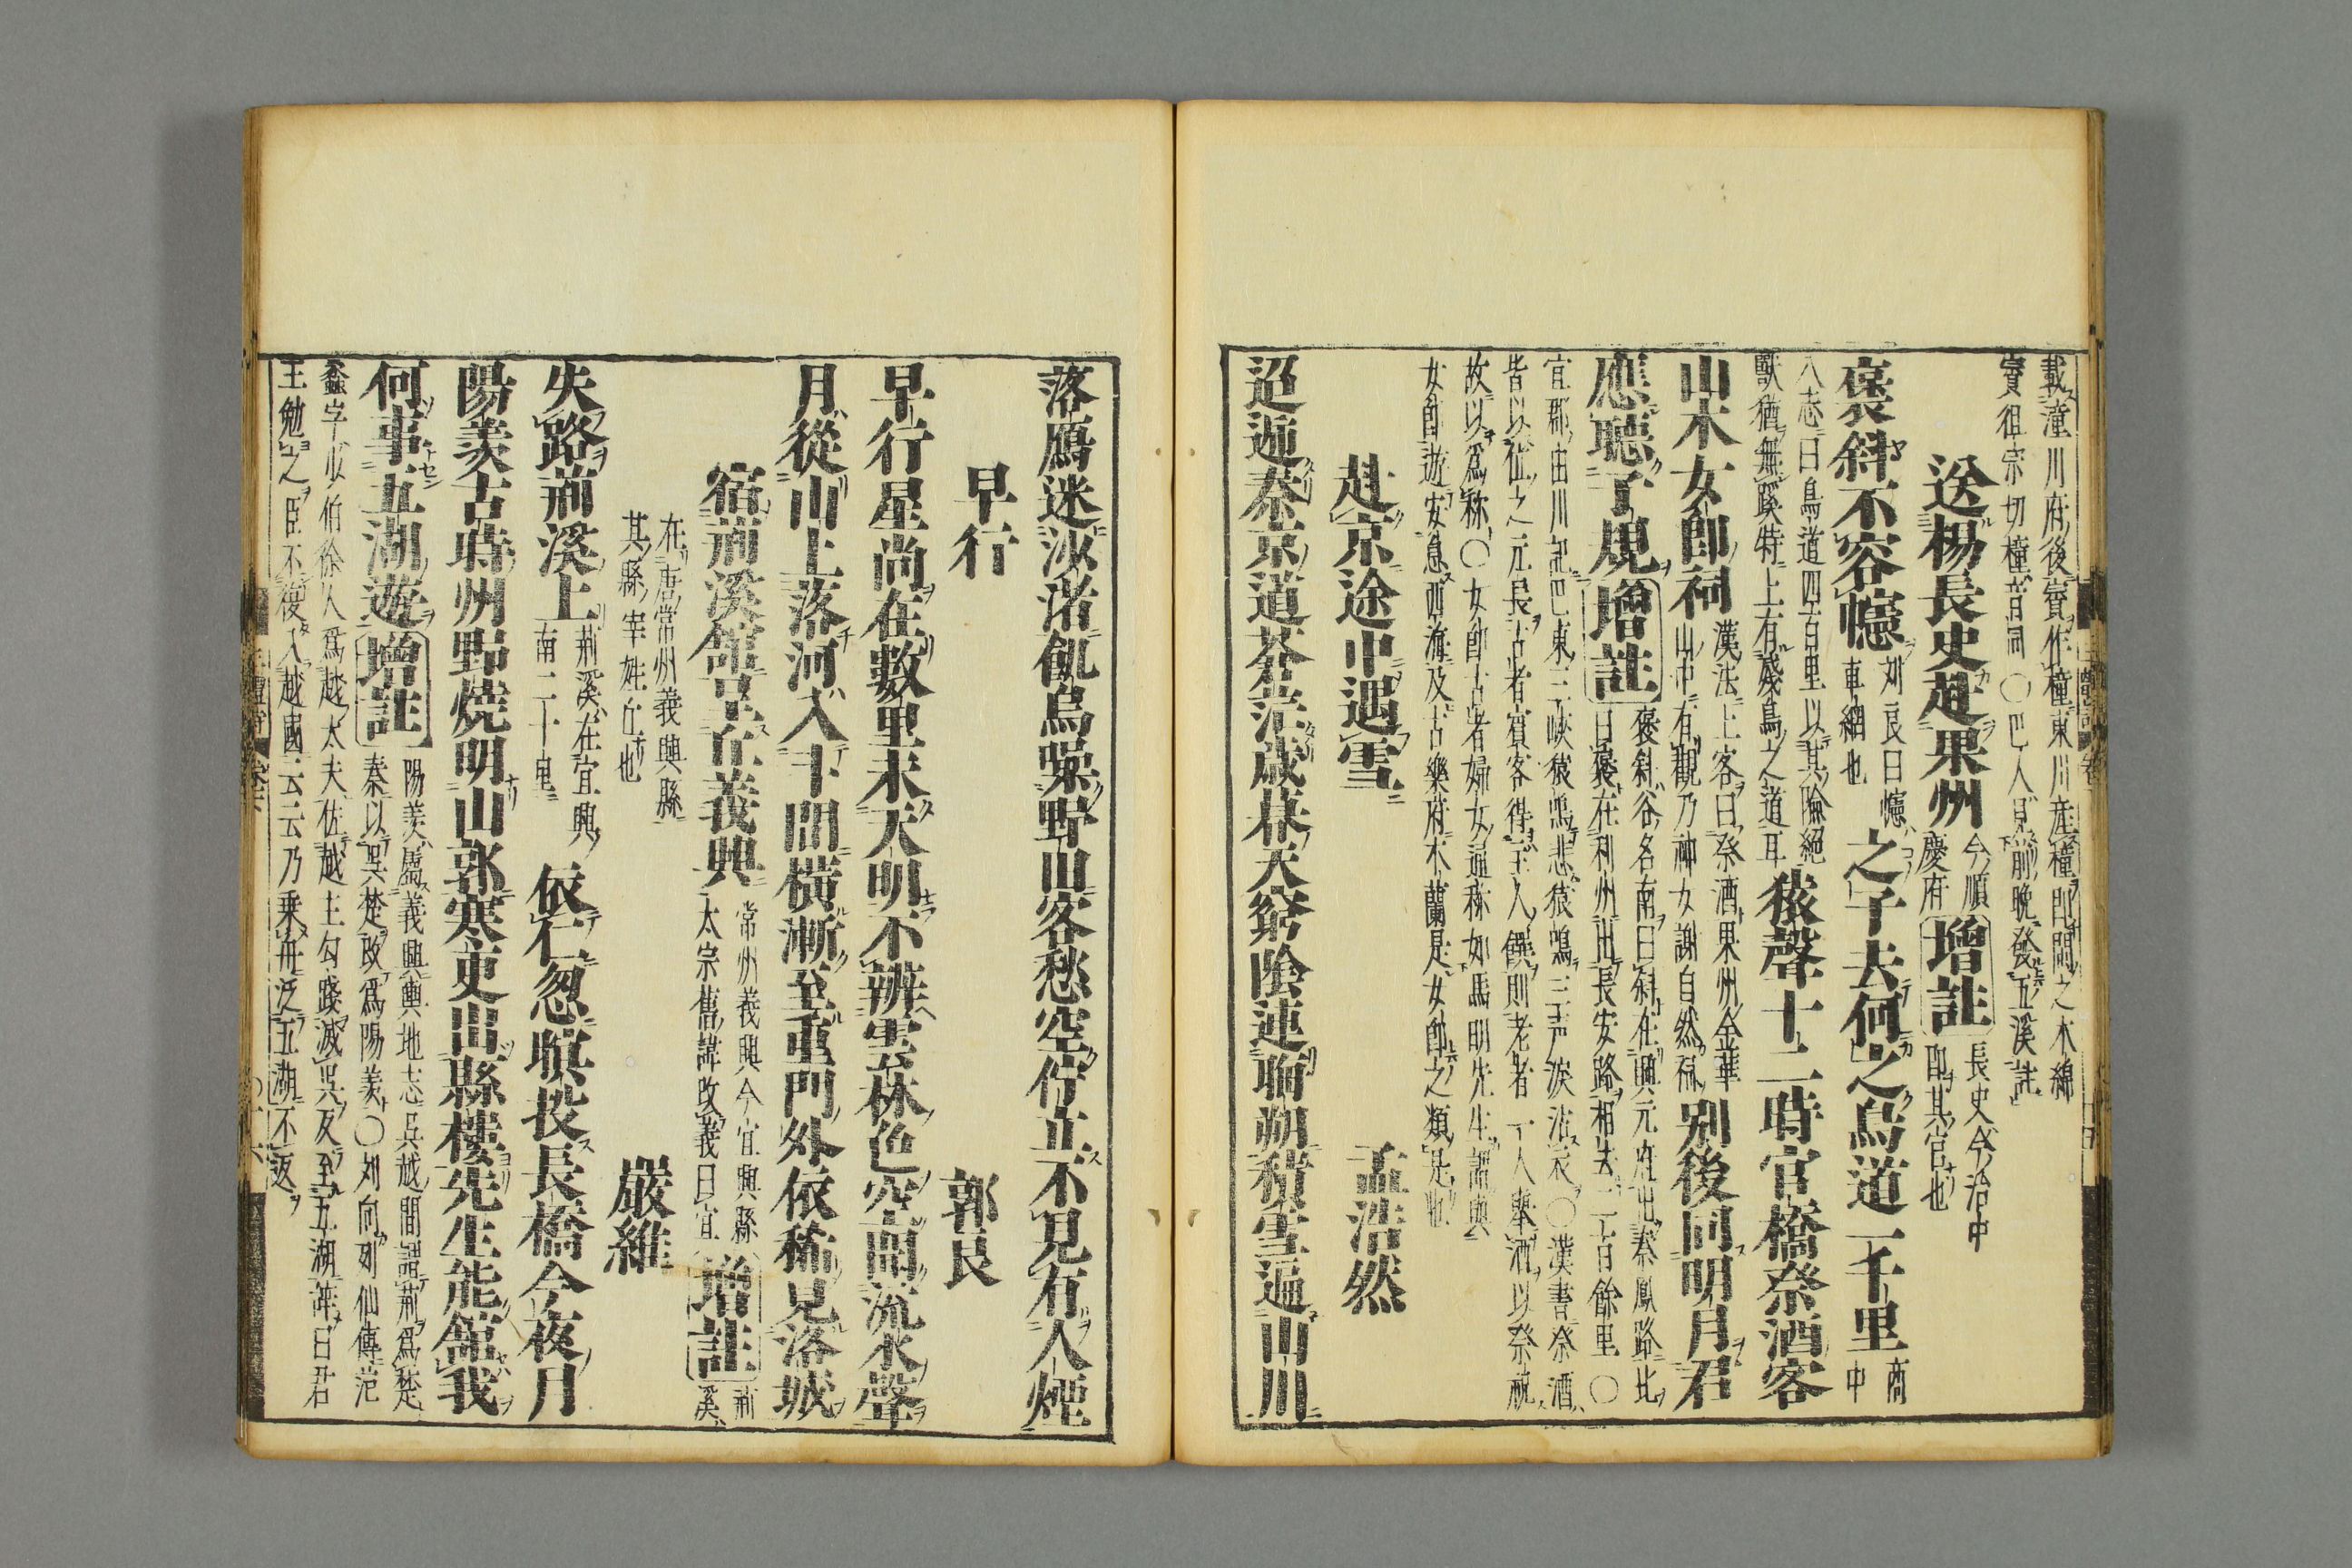 載潼川府後賨作橦東川産橦即閩之木綿
賨徂宗切橦音同〇巴人見前晩發五溪註
送楊長史赴果州
今順
慶府
增註
長史今治中
即其官也
褒斜不容幰
刘良曰幰
車網也
之子去何之鳥道一千里
商
中
入志曰鳥道四百里以其險絕
獸猶無蹊特上有飛鳥之道耳
猿聲十二時官橋祭酒客
山木女郎祠
漢法上客曰祭酒果州金華
山中有觀乃神女謝自然
別後同明月君
應聽子規
增註
褒斜谷名南曰斜在興元府
曰褒在利州
出長安路相去
百餘里〇
宜都宙川記巴東三峽猿鳴悲猿鳴三声淚沾衣〇漢書祭酒
皆以位之元長古者賓客得主人饌則老者一人舉酒以祭
故以爲称〇女郎古者婦女通称如馬明先生
女郎遊安息西海及古樂府木蘭是女郎之類是也
赴京途中遇雪
孟浩然
迢遞秦京道蒼茫歳暮天窮陰連晦朔積雪遍山川
落鴈迷沙渚飢烏噪野山客愁空佇立不見有人煙
早行
郭良
早行星尚在數里未天明不辨雲林色空聞流水聲
月從山上落河入斗間橫漸至重門外依稀見洛城
宿荊溪館呈丘義興
常州義興今宜興縣
太宗舊諱改義曰宜
增註
荊
溪
在唐常州義興縣
其縣宰姓丘也
嚴維
失路荊溪上
荊溪在宜興
南二十里
依仁忽暝投長橋今夜月
陽羡古時州野燒明山郭寒更出縣樓先生能館我
何事五湖遊
增註
陽羡屬義興輿地志吳越間謂荊爲楚
秦以吳楚改爲陽羡〇刘向列仙傳范
蠡字少伯徐人爲越大夫佐越王勾踐滅吳反至五湖辞曰君
王勉之臣不復入越國云云乃乗舟泛五湖不返